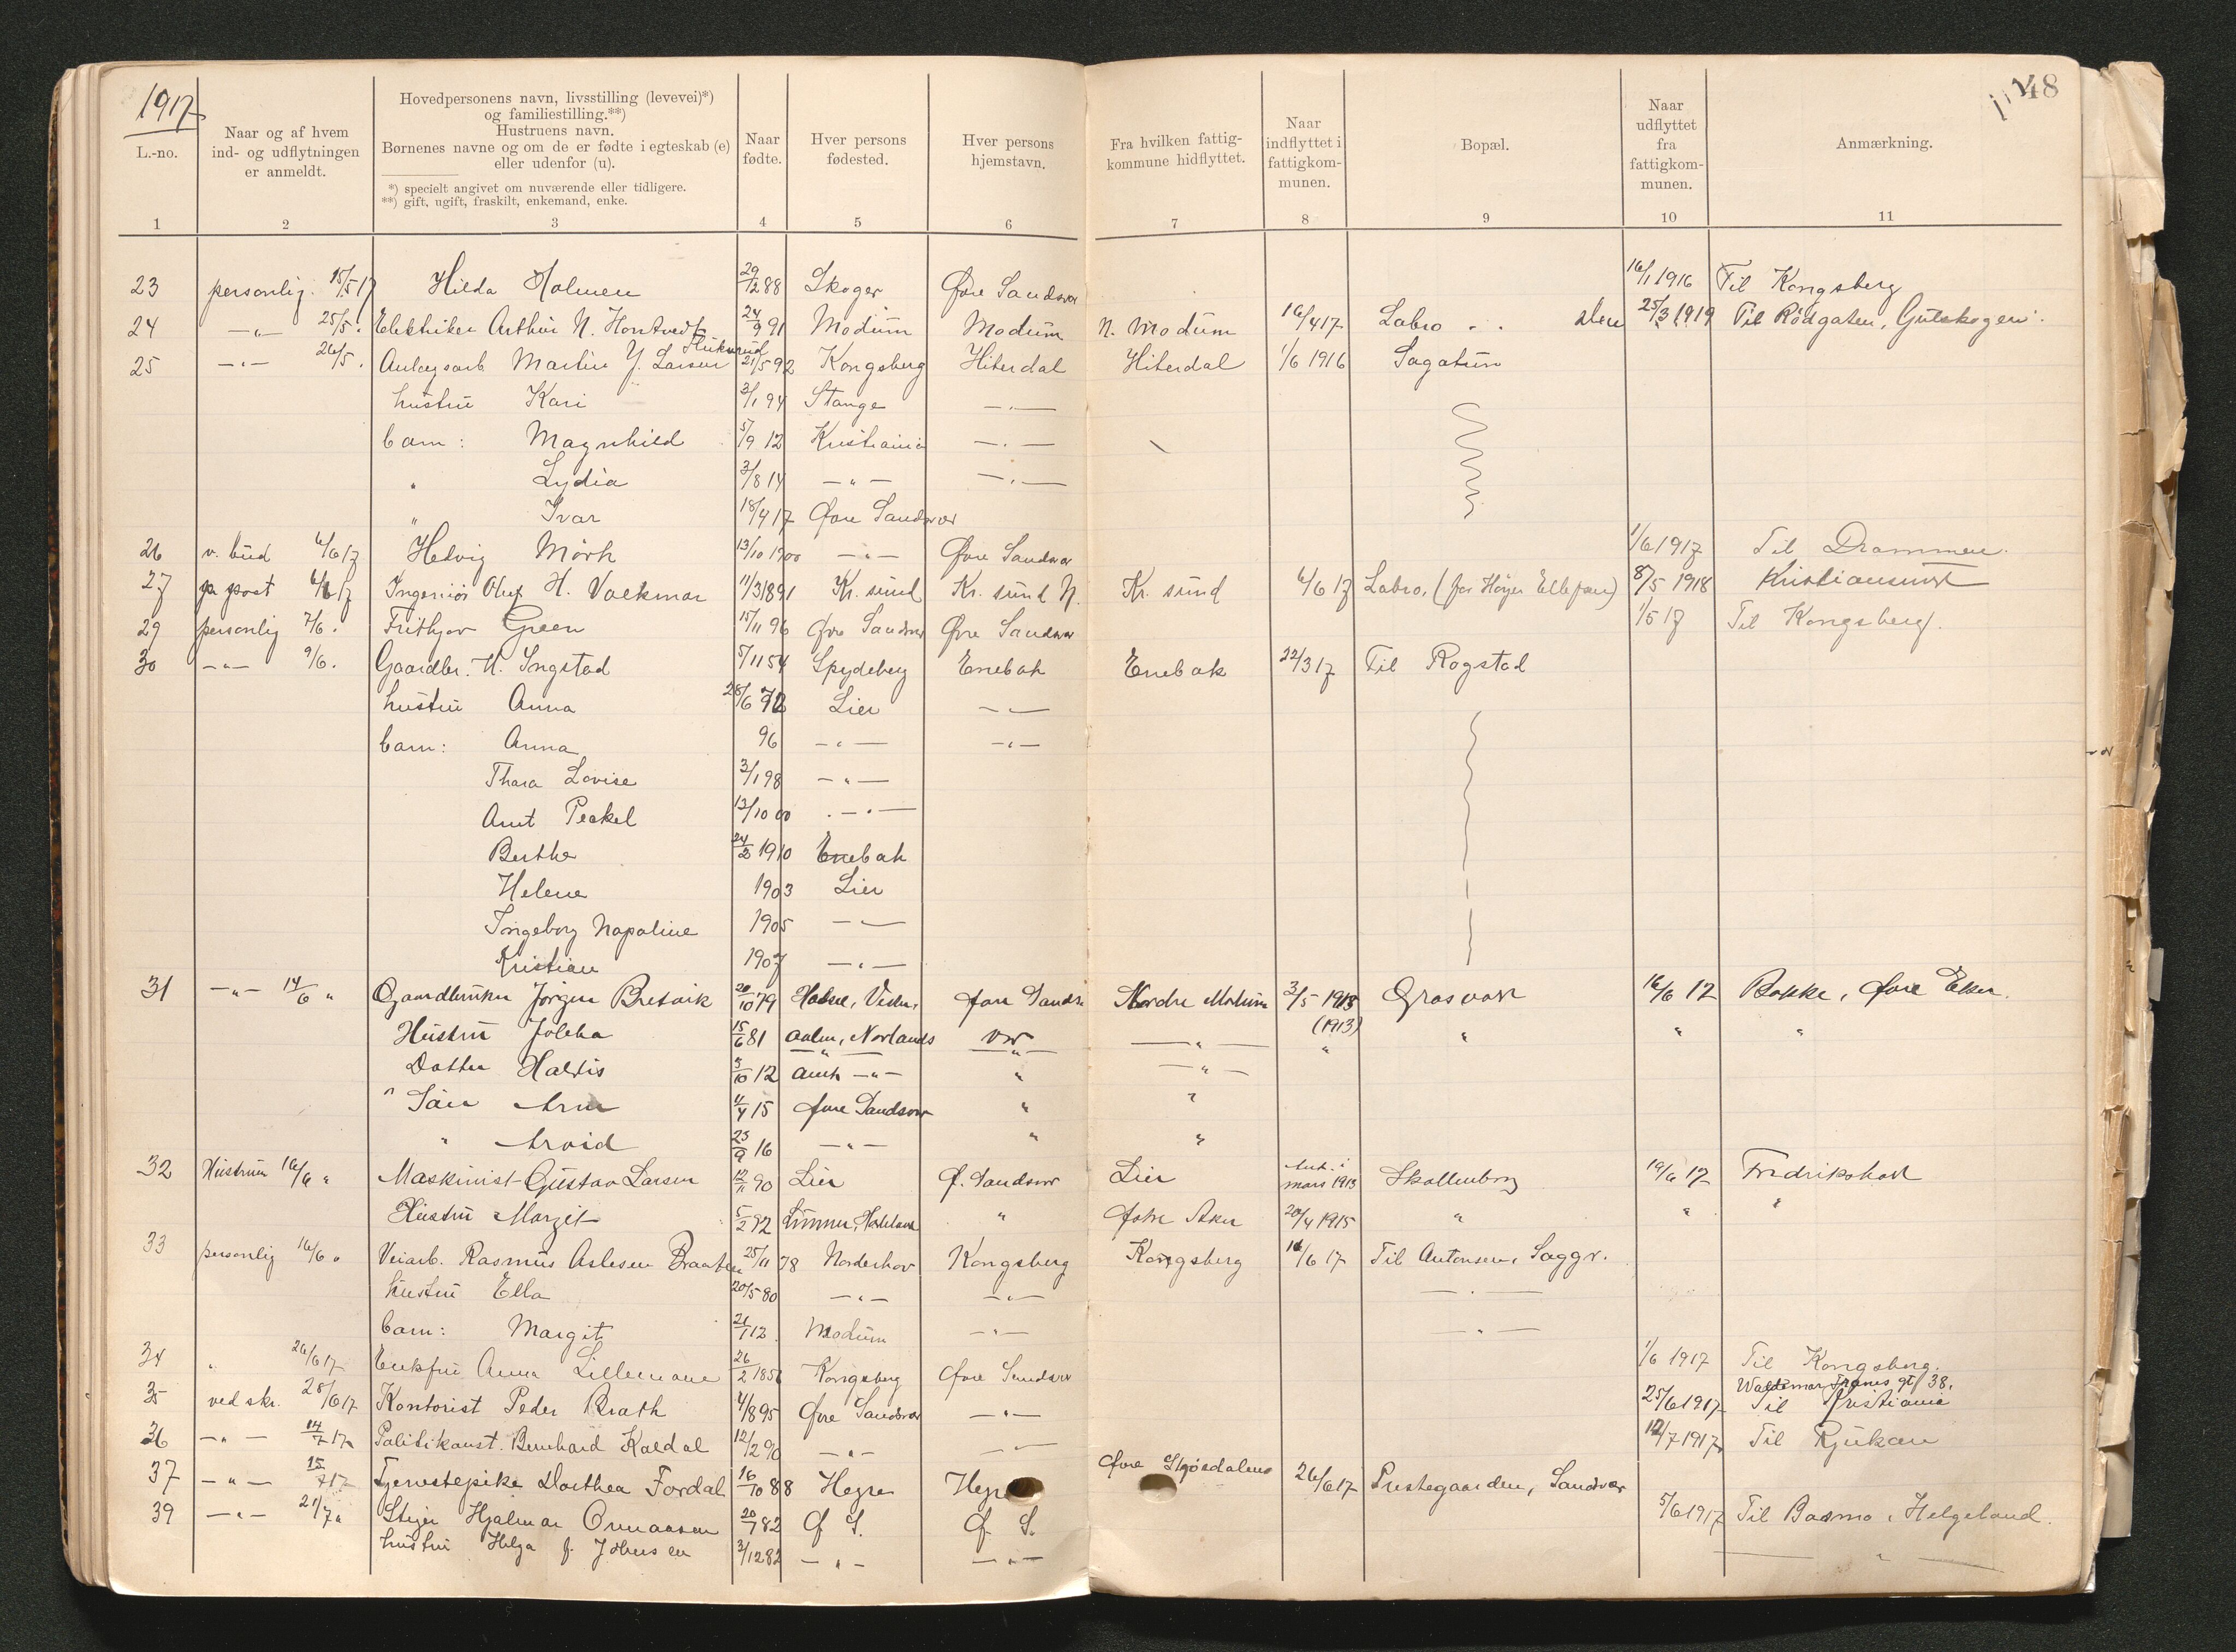 1917
48
L.-no.
Naar og af hvem
ind- og udflytningen
er anmeldt.
Hovedpersonens navn, livsstilling (levevei)*)
og familiestilling.**)
Hustruens navn.
Børnenes navne og om de er fødte i egteskab (e)
eller udenfor (u).
*) specielt angivet om nuværende eller tidligere.
**) gift, ugift, fraskilt, enkemand, enke.
Naar
fødte.
Hver persons
fødested.
Hver persons
hjemstavn.
Fra hvilken fattig-
kommune hidflyttet.
Naar
indflyttet i
fattigkom-
munen.
Bopæl.
Naar
udflyttet
fra
fattigkom-
munen.
Anmærkning.
1 2 3 4 5 6 7 8 9 10 11
23 personlig. 15/5 17 Hilda Holmen 29/12 88 Skoger Øvre Sandsvær 16/1 1916 Til Kongsberg
24 -"- 25/5. Elektriker Arthur N. 24/9 91 Modum Modum N. Modum 16/4 17 Labro 25/3 1919 Til Rødgaten, Gulskogen.
25 -"- 26/5. Anlægsarb Martin Y. Larsen 21/5 92 Kongsberg Hiterdal Hiterdal 1/6 1916 Sagatun
hustru Kari 3/1 94 Stange -"-
barn: Magnhild 5/9 12 Kristiania -"-
" Lydia 3/8 14 -"- -"-
" Ivar 18/4 17 Øvre Sandsvær
26 v. bud 6/6 17 Helvig Mörk 13/10 1900 -"- Øvre Sandsvær 1/6 1917 Til Drammen.
27 pr post 6/6 17 Ingeniör Oluf H. Volkmar 11/3 1891 Kr. sund Kr. sund N. Kr. sund 6/6 17 Labro, (for Höyer Ellefsen) 8/5 1918 Kristiansund
29 personlig 7/6. Frithjov Green 15/11 96 Øvre Sandsvær Øvre Sandsvær 1/5 17 Til Kongsberg.
30 -"- 9/6. Gaardbr. K. Yngstad 5/11 54 Spydeberg Enebak Enebak 22/3 17 Til Rogstad
hustru Anna 28/6 72 Lier -"-
barn: Anna 96 -"- -"-
Thara Lovise 3/1 98 -"-
Amt Peckel 13/10 00 -"-
Berthe 24/2 1910 Enebak
Helene 1903 Lier
Ingeborg Napoline 1905 -"-
Kristian 1907 -"-
31 -"- 14/6 " Gaardbruker Jörgen Bretvik 20/10 79 Øvre Sands Nordre Modum 3/5 1913 Grosvold 16/6 17 Bakke, Øvre Eker.
Hustru 15/6 81 vær -"- (1913) " " "
Datter Haldis 5/10 12 Amt -"- " -"-
" Sön Arne 11/4 15 Øvre Sandsvær " "
" Arvid 23/9 16 -"- " "
32 Hustruen 16/6 " Maskinist Gustav Larsen 12/11 90 Lier Ø. Sandsvær Lier mars 1913 Skollenborg 19/6 17 Fredrikshald
Hustru Margit 5/2 92 Lunner, Hadeland " Østre Aker 20/4 1915 " " "
33 personlig 16/6 " Veiarb. Rasmus Aslesen Braaten 25/11 78 Norderhov Kongsberg Kongsberg 16/6 17 Til Antonsen, Saggr.
hustru Ella 20/5 80 -"- -"- -"-
barn: Margit 21/1 12 Modum -"- -"-
34 " 26/6 17 Enkefru Anna 26/2 185 Kongsberg Øvre Sandsvær 1/6 1917 Til Kongsberg.
Waldemar Tranes gt 38.
35 ved skr. 28/6 17 Kontorist Peder Brath 4/8 95 Øvre Sandsvær -"- 25/6 1917 Til Kristiania
36 -"- 14/7 17. Politikonst. Bernhard Kaldal 12/2 90 -"- -"- 12/7 1917 Til Rjukan
37 -"- 15/7 17 Tjenestepike Dorthea Fordal 16/10 88 Hegre Øvre Stjördalen 26/6 17 Prestegaarden, Sandsvær
39 -"- 21/7 " Stiger Hjalmar 20/7 82 Ø S. Ø. S. 5/6 1917 Til Basmo i Helgeland.
hustru Helga f. Johnsen 3/12 82 -"- -"- -"-